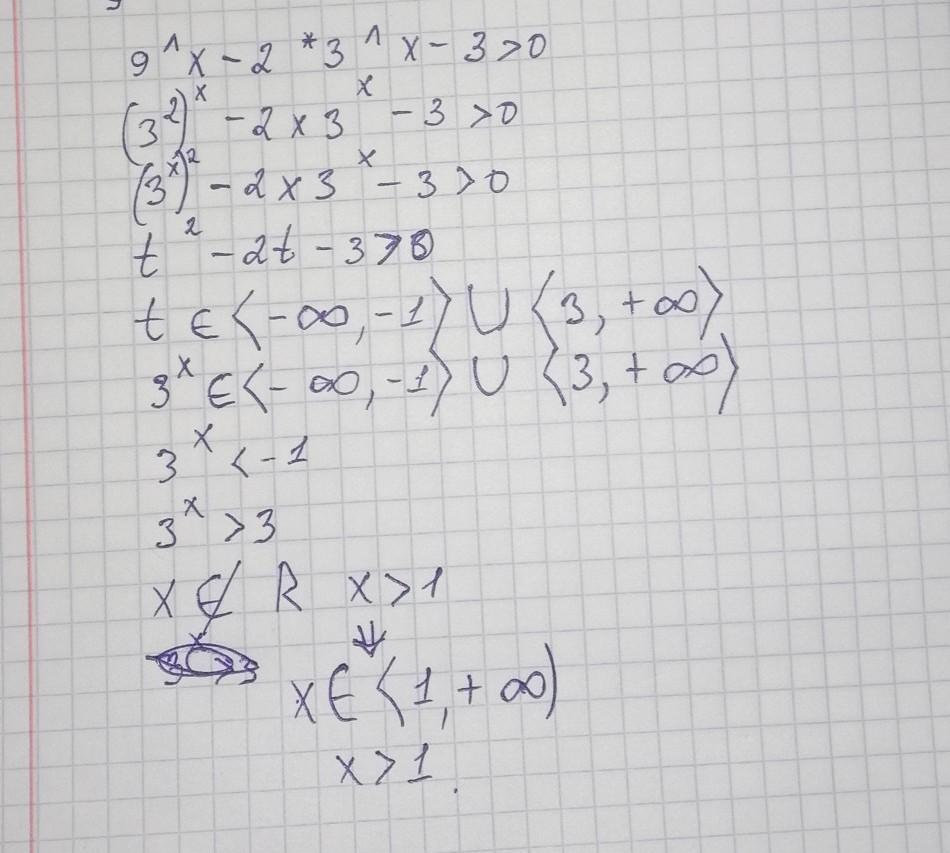 9^x - 2 * 3^x - 3 > 0
(3²)ˣ - 2 × 3ˣ - 3 > 0
(3ˣ)² - 2 × 3ˣ - 3 > 0
t² - 2t - 3 > 0
t ∈ ⟨-∞, -1⟩ ∪ ⟨3, +∞⟩
3ˣ ∈ ⟨-∞, -1⟩ ∪ ⟨3, +∞⟩
3ˣ < -1
3ˣ > 3
x ∉ R x > 1
⇓
x ∈ ⟨1, +∞)
x > 1.